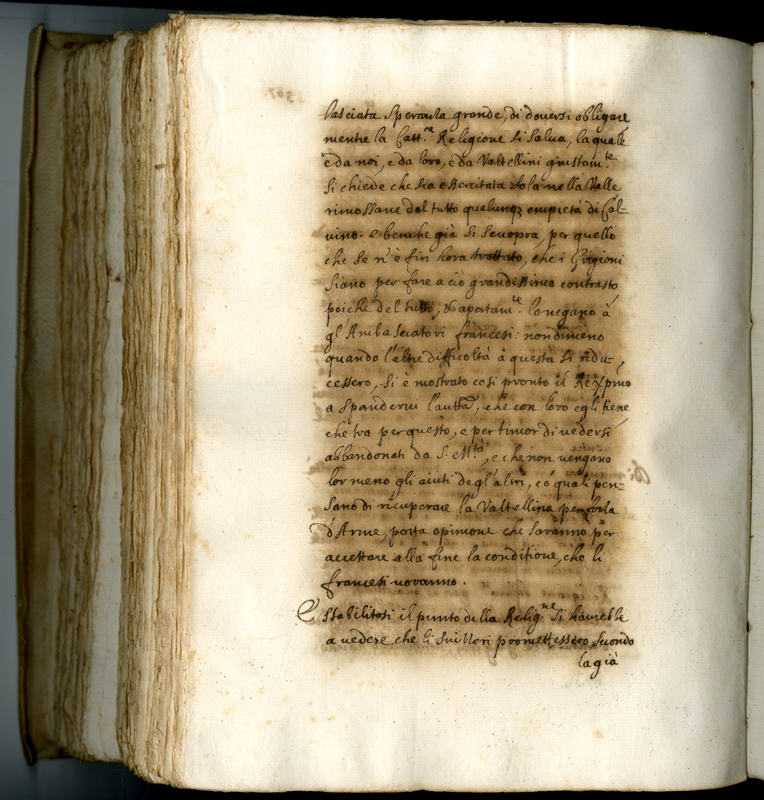 lasciata speranza grande, di doversi obligare
mentre la Catt.ca Religione si salva, la quale
è da noi, e da loro, e da Valtellini giustam.te
si chiede che sia essercitata sola nella Valle
rimossane del tutto qualunq; empietà di Cal-
vino. e benche già si scuopra, per quello
che se n'è fin hora trattato, che i Grigioni
siano per fare a ciò grandissimo contrasto
poiche del tutto, & apertam.te lo negano à
gl'Ambasciatori francesi: nondimeno
quando l'altre difficoltà à questa si ridu-
cessero, si è mostrato così pronto il Re Xpmo
a spanderui l'autta, che con loro egli tiene
che tra per questo, e per timor di vedersi
abbandonati da S. M.tà, e che non vengano
lor meno gli aiuti degl'altri, co' quali pen-
sano di ricuperare la Valtellina per forza
d'Arme, porta opinione che saranno per
accettare alla fine la conditione, che li
francesi voranno.
E stabilitosi il punto della Relig.ne si haurebbe
a vedere che li Suizzeri promettessero secondo
la già